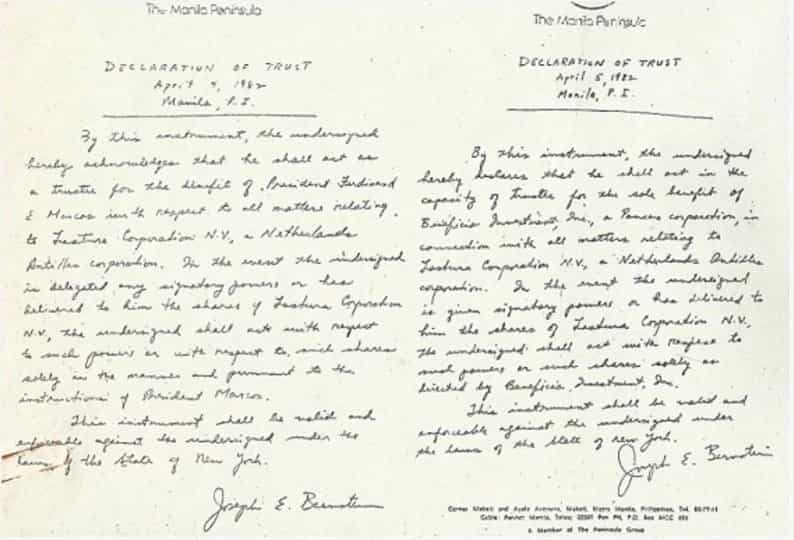 The Manila Peninsula
DECLARATION OF TRUST
April 4, 1982
Manila, P.I.
By this instrument, the undersigned
hereby acknowledges that he shall act as
a trustee for the benefit of President Ferdinand
E Marcos with respect to all matters relating
to Lastura Corporation N.V., a Netherlands
Antilles corporation. In the event the undersigned
is delegated any signatory powers or has
delivered to him the shares of Lastura Corporation
N.V., the undersigned shall act with respect
to such powers or with respect to such shares
solely in the manner and pursuant to the
instructions of President Marcos.
This instrument shall be valid and
enforceable against the undersigned under the
laws of the State of New York.
Joseph E. Bernstein
The Manila Peninsula
DECLARATION OF TRUST
April 5, 1982
Manila, P.I.
By this instrument, the undersigned
hereby declares that he shall act in the
capacity of trustee for the sole benefit of
Beneficio Investment, Inc., a Panama corporation, in
connection with all matters relating to
Lastura Corporation N.V., a Netherlands Antilles
corporation. In the event the undersigned
is given signatory powers or has delivered to
him the shares of Lastura Corporation N.V.,
the undersigned shall act with respect to
such powers or such shares solely as
directed by Beneficio Investment, Inc.
This instrument shall be valid and
enforceable against the undersigned under
the laws of the State of New York.
Joseph E. Bernstein
Corner Makati and Ayala Avenues, Makati, Metro Manila, Philippines, Tel.
Cable: Penhot Manila, Telex: Pen PH, P.O. Box MCC
a Member of The Peninsula Group